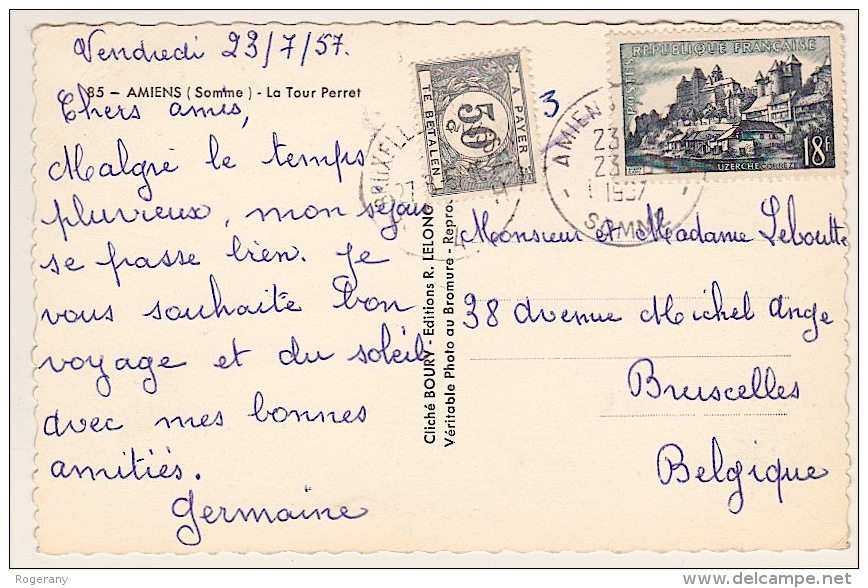 Vendredi 23/7/57.
85 – AMIENS (Somme) - La Tour Perret
Chers amis,
Malgré le temps
pluvieux, mon séjour
se passe bien. Je
vous souhaite bon
voyage et du soleil
avec mes bonnes
amitiés.
Germaine
Cliché BOURY - Editions R. LELONG
Véritable Photo au Bromure - Repro
A PAYER
50
TE BETALEN
BRUXELL
27
3
AMIEN
23
23
1957
SOMME
POSTES
REPUBLIQUE FRANÇAISE
UZERCHE-CORREZE
18F
Monsieur et Madame Leboutte
38 avenue Michel Ange
Bruxelles
Belgique
Rogerany
delcampe.net